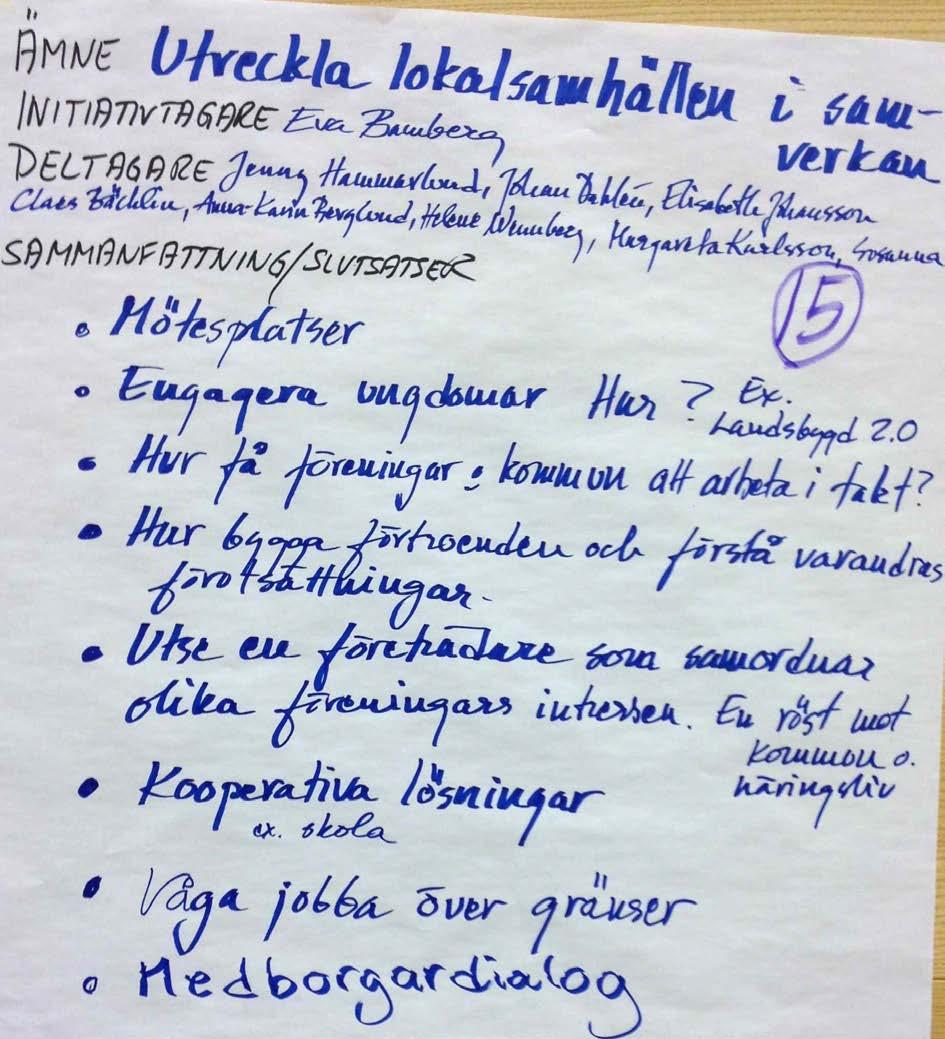 ÄMNE Utveckla lokalsamhällen i sam-
verkan
INITIATIVTAGARE Eva Bamberg
DELTAGARE Jenny Hammarlund, Johan Dahlén, Elisabeth Johansson
Claes Bächlin, Anna-Karin Berglund, Helene Wennberg, Margareta Karlsson, Susanna
SAMMANFATTNING/SLUTSATSER
15
• Mötesplatser
• Engagera ungdomar Hur? Ex.
Landsbygd 2.0
• Hur få föreningar & kommun att arbeta i takt?
• Hur bygga förtroenden och förstå varandras
förutsättningar.
• Utse en företrädare som samordnar
olika föreningars intressen. En röst mot
kommun o.
näringsliv
• Kooperativa lösningar
ex. skola
• Våga jobba över gränser
• Medborgardialog